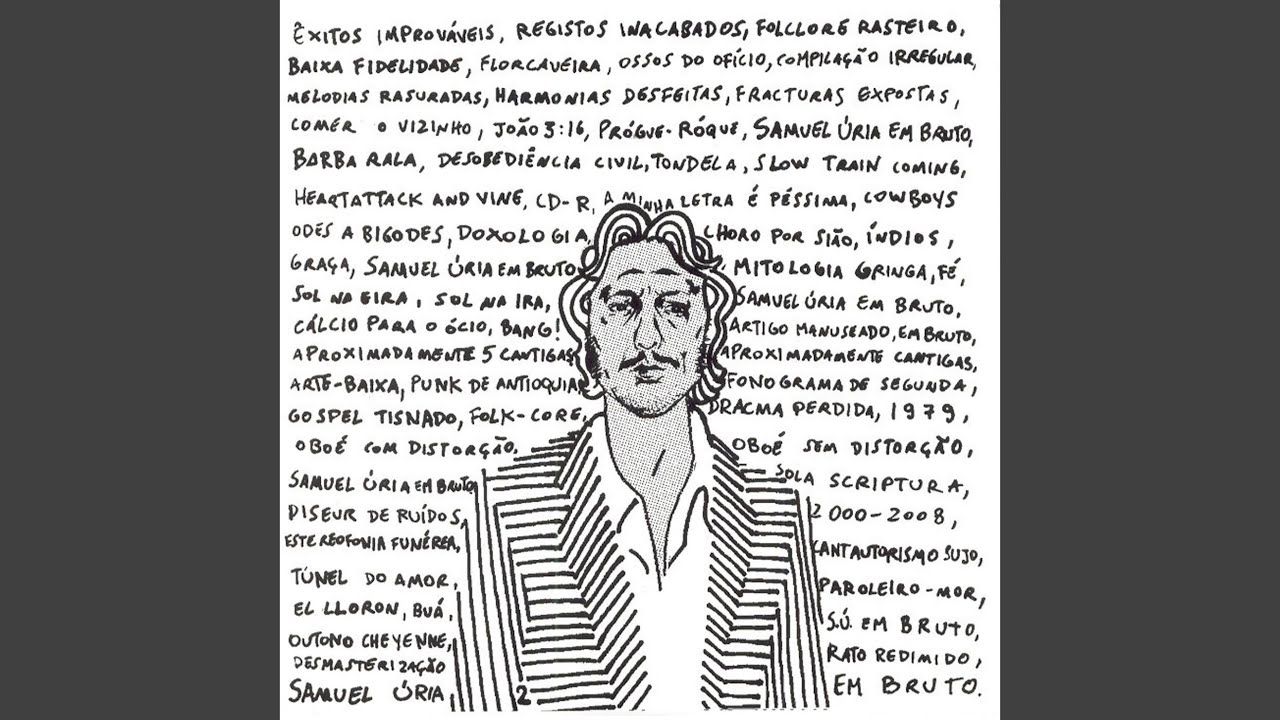 ÊXITOS IMPROVÁVEIS, REGISTOS INACABADOS, FOLCLORE RASTEIRO,
BAIXA FIDELIDADE, FLORCAVEIRA, OSSOS DO OFÍCIO, COMPILAÇÃO IRREGULAR,
MELODIAS RASURADAS, HARMONIAS DESFEITAS, FRACTURAS EXPOSTAS,
COMER O VIZINHO, JOÃO 3:16, PRÓGUE-RÓQUE, SAMUEL ÚRIA EM BRUTO,
BARBA RALA, DESOBEDIÊNCIA CIVIL, TONDELA, SLOW TRAIN COMING,
HEARTATTACK AND VINE, CD-R, A MINHA LETRA É PÉSSIMA, COWBOYS
ODES A BIGODES, DOXOLOGIA, CHORO POR SIÃO, ÍNDIOS,
GRAÇA, SAMUEL ÚRIA EM BRUTO, MITOLOGIA GRINGA, FÉ,
SOL NA EIRA, SOL NA IRA, SAMUEL ÚRIA EM BRUTO,
CÁLCIO PARA O ÓCIO, BANG! ARTIGO MANUSEADO, EM BRUTO,
APROXIMADAMENTE 5 CANTIGAS, APROXIMADAMENTE CANTIGAS,
ARTE-BAIXA, PUNK DE ANTIOQUIA, FONOGRAMA DE SEGUNDA,
GOSPEL TISNADO, FOLK-CORE, DRACMA PERDIDA, 1979,
OBOÉ COM DISTORÇÃO, OBOÉ SEM DISTORÇÃO,
SAMUEL ÚRIA EM BRUTO, SOLA SCRIPTURA,
DISEUR DE RUÍDOS, 2000-2008,
ESTEREOFONIA FUNÉREA, CANTAUTORISMO SUJO,
TÚNEL DO AMOR, PAROLEIRO-MOR,
EL LLORON, BUÁ, S.Ú. EM BRUTO,
OUTONO CHEYENNE, RATO REDIMIDO,
DESMASTERIZAÇÃO
SAMUEL ÚRIA, 2 EM BRUTO.